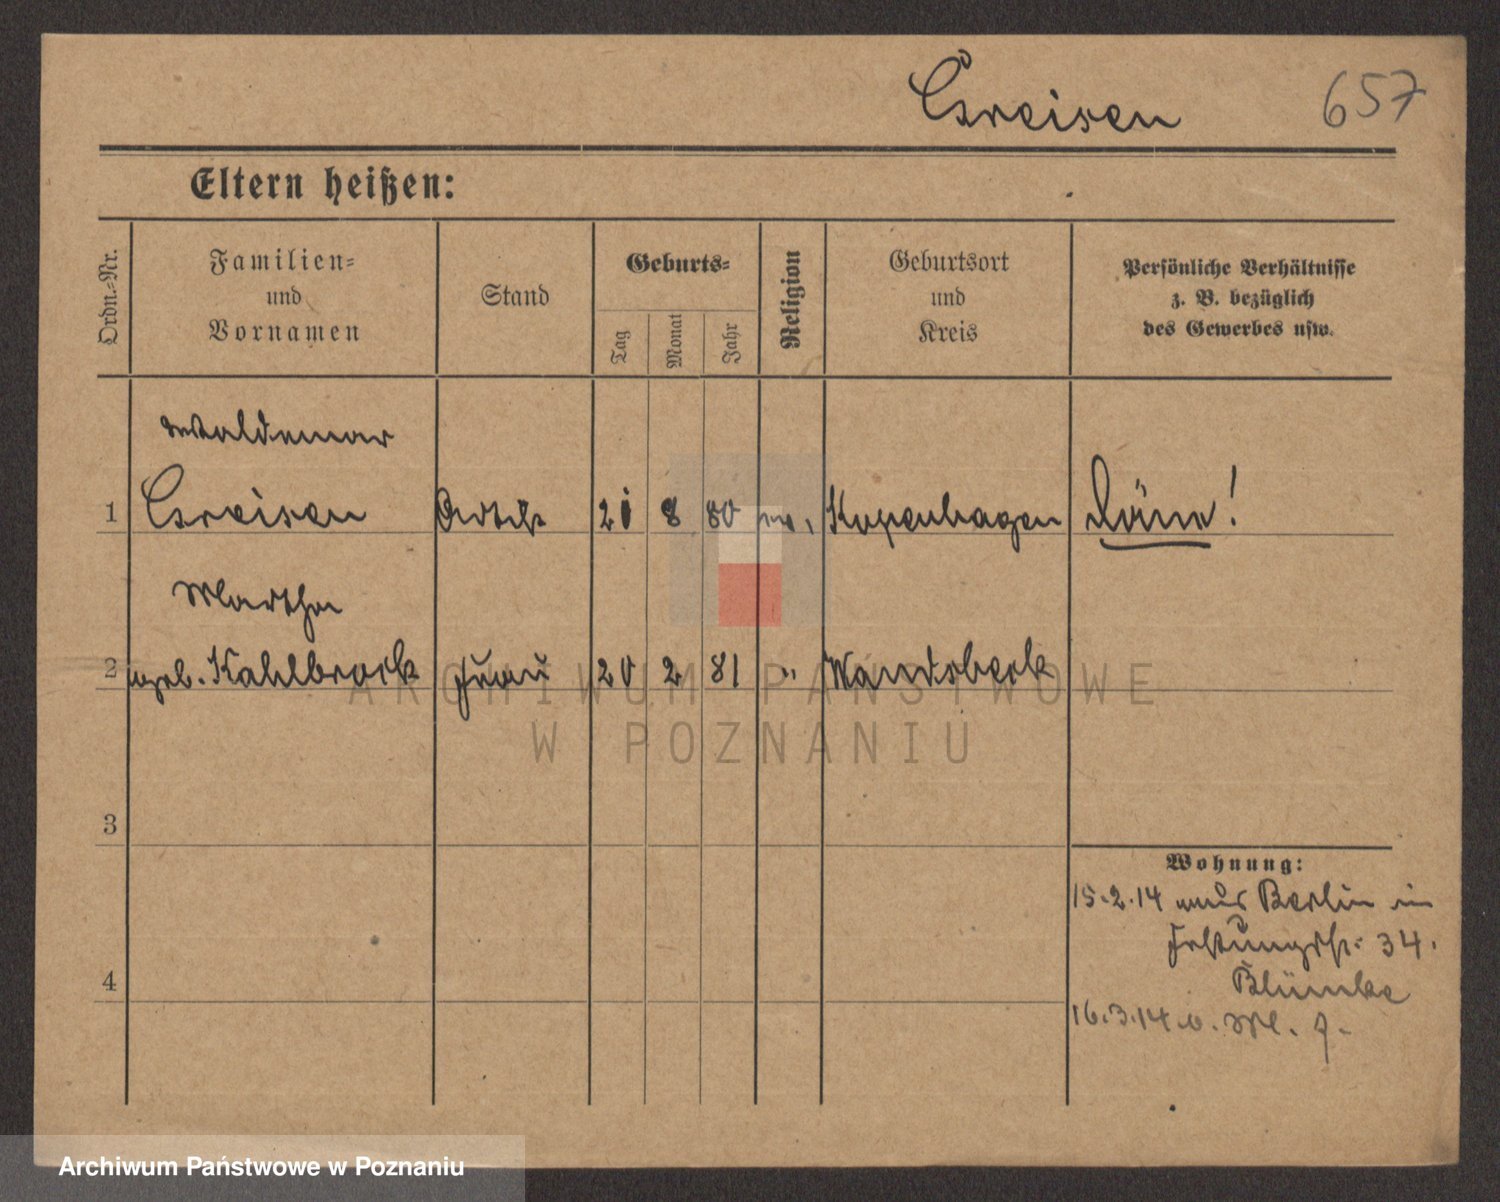 Greisen 657
Eltern heißen:
Ordn.-Nr.
Familien-
und
Vornamen
Stand
Geburts-
Tag
Monat
Jahr
Religion
Geburtsort
und
Kreis
Persönliche Verhältnisse
z. B. bezüglich
des Gewerbes usw.
Waldemar
1 Greisen Artist 21 8 80 ev. Kopenhagen Däne!
Martha
2 geb. Kahlbrock Frau 20 2 81 " Wandsbeck
3
Wohnung:
15.2.14 aus Berlin in
Festungsstr. 34.
4
Blümke
16.3.14
ARCHIWUM PAŃSTWOWE
W POZNANIU
Archiwum Państwowe w Poznaniu